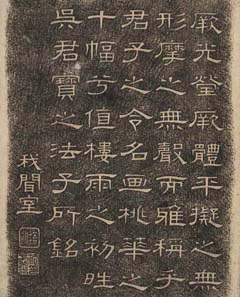 厥光瑩厥體平擬之無
形摩之無聲而雅稱乎
君子之令名画桃華之
十幅兮值樓雨之初
吳君寶之法子所銘
閒室